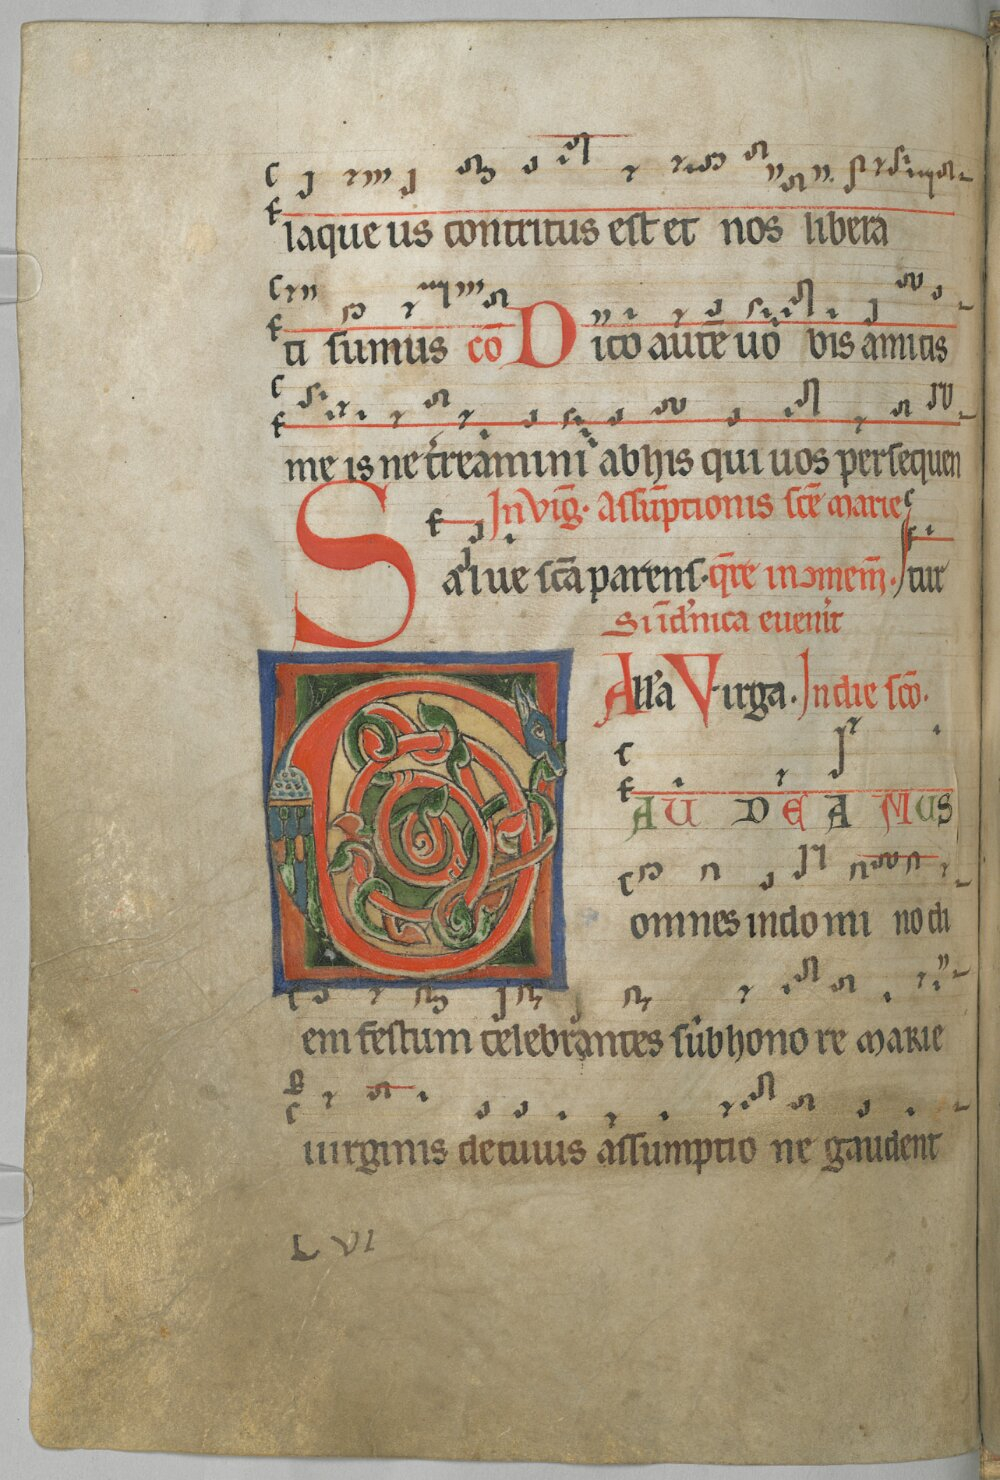 laque us contritus est et nos libera
ti sumus cō Dico autē uo bis amicis
me is ne t'reamini ab his qui uos persequen
In vig̅. assūptionis scē marie
Salue scā parens. q̄re in ɔmem̄. Itur
si īd'nica euen'it
All'a Virga. In die scō.
GAUDEAMUS
omnes in domi no di
em festum celebrantes sub hono re marie
uirginis de cuius assumptio ne gaudent
L VI